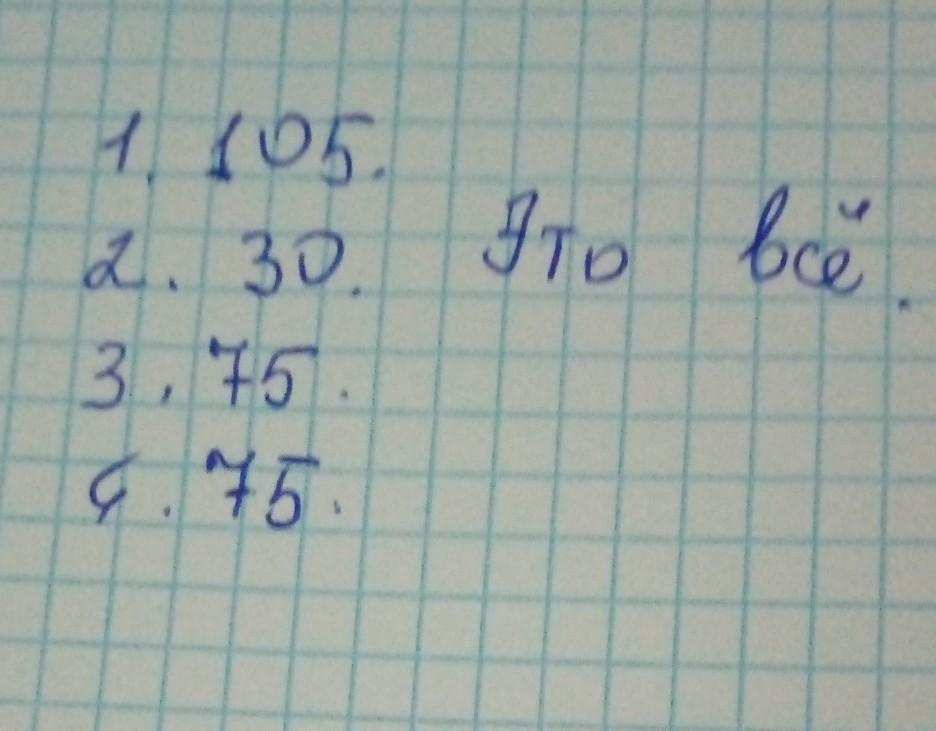 1. 105.
2. 30. Это всё.
3. 75.
4. 75.